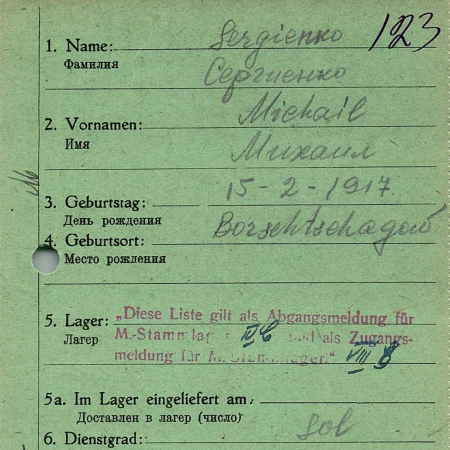 Sergienko 123
1. Name:
Фамилия Сергиенко
Michail
2. Vornamen:
Имя Михаил
3. Geburtstag: 15-2-1917
День рождения
4. Geburtsort: Borschtschagow
Место рождения
„Diese Liste gilt als Abgangsmeldung für
5. Lager: M.-Stammlager IV C und als Zugangs-
Лагер meldung für M. Stammlager." VIII B
5a. Im Lager eingeliefert am:
Доставлен в лагер (число)
6. Dienstgrad: Sol